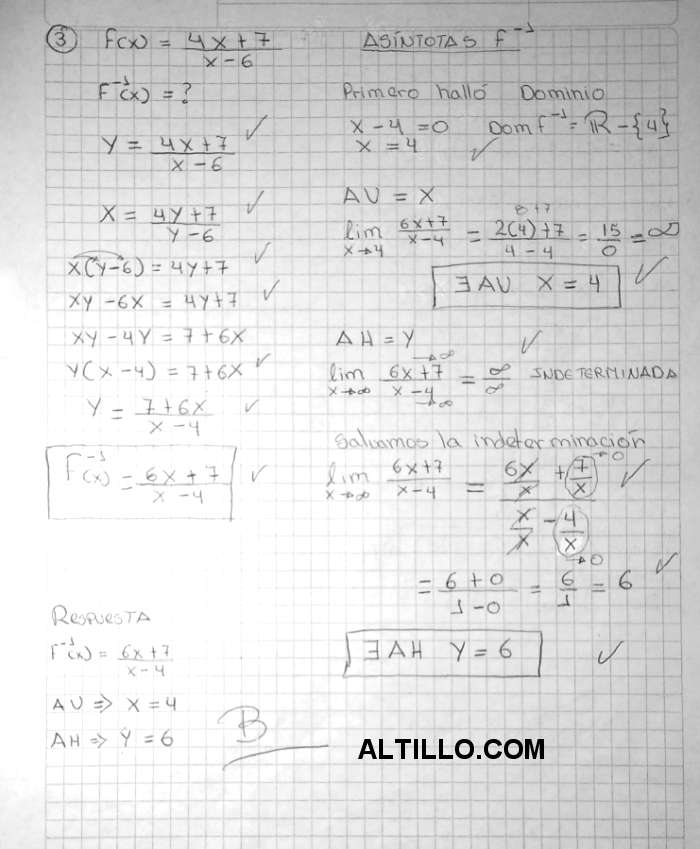 ③ F(x) = (4x+7)/(x-6)
F⁻¹(x) = ?
Y = (4x+7)/(x-6) ✓
X = (4Y+7)/(Y-6) ✓
X(Y-6) = 4Y+7 ✓
XY - 6X = 4Y+7 ✓
XY - 4Y = 7+6X
Y(X-4) = 7+6X ✓
Y = (7+6X)/(X-4) ✓
F⁻¹(x) = (6x+7)/(x-4) ✓
RESPUESTA
F⁻¹(x) = (6x+7)/(x-4)
AV => X = 4
AH => Y = 6
ASÍNTOTAS F⁻¹
Primero halló Dominio
X - 4 = 0 Dom F⁻¹ = ℝ - {4}
X = 4 ✓
AV = X
8+7
lim x→4 (6x+7)/(x-4) = (2(4)+7)/(4-4) = 15/0 = ∞
∃ AV X = 4 ✓
AH = Y ✓
lim x→∞ (6x+7)/(x-4) = ∞/∞ INDETERMINADA
→∞
→∞
Salvamos la indeterminación
lim x→∞ (6x+7)/(x-4) = (6x/x + 7/x)/(x/x - 4/x) ✓
→0
→0
= (6+0)/(1-0) = 6/1 = 6 ✓
∃ AH Y = 6 ✓
B
ALTILLO.COM